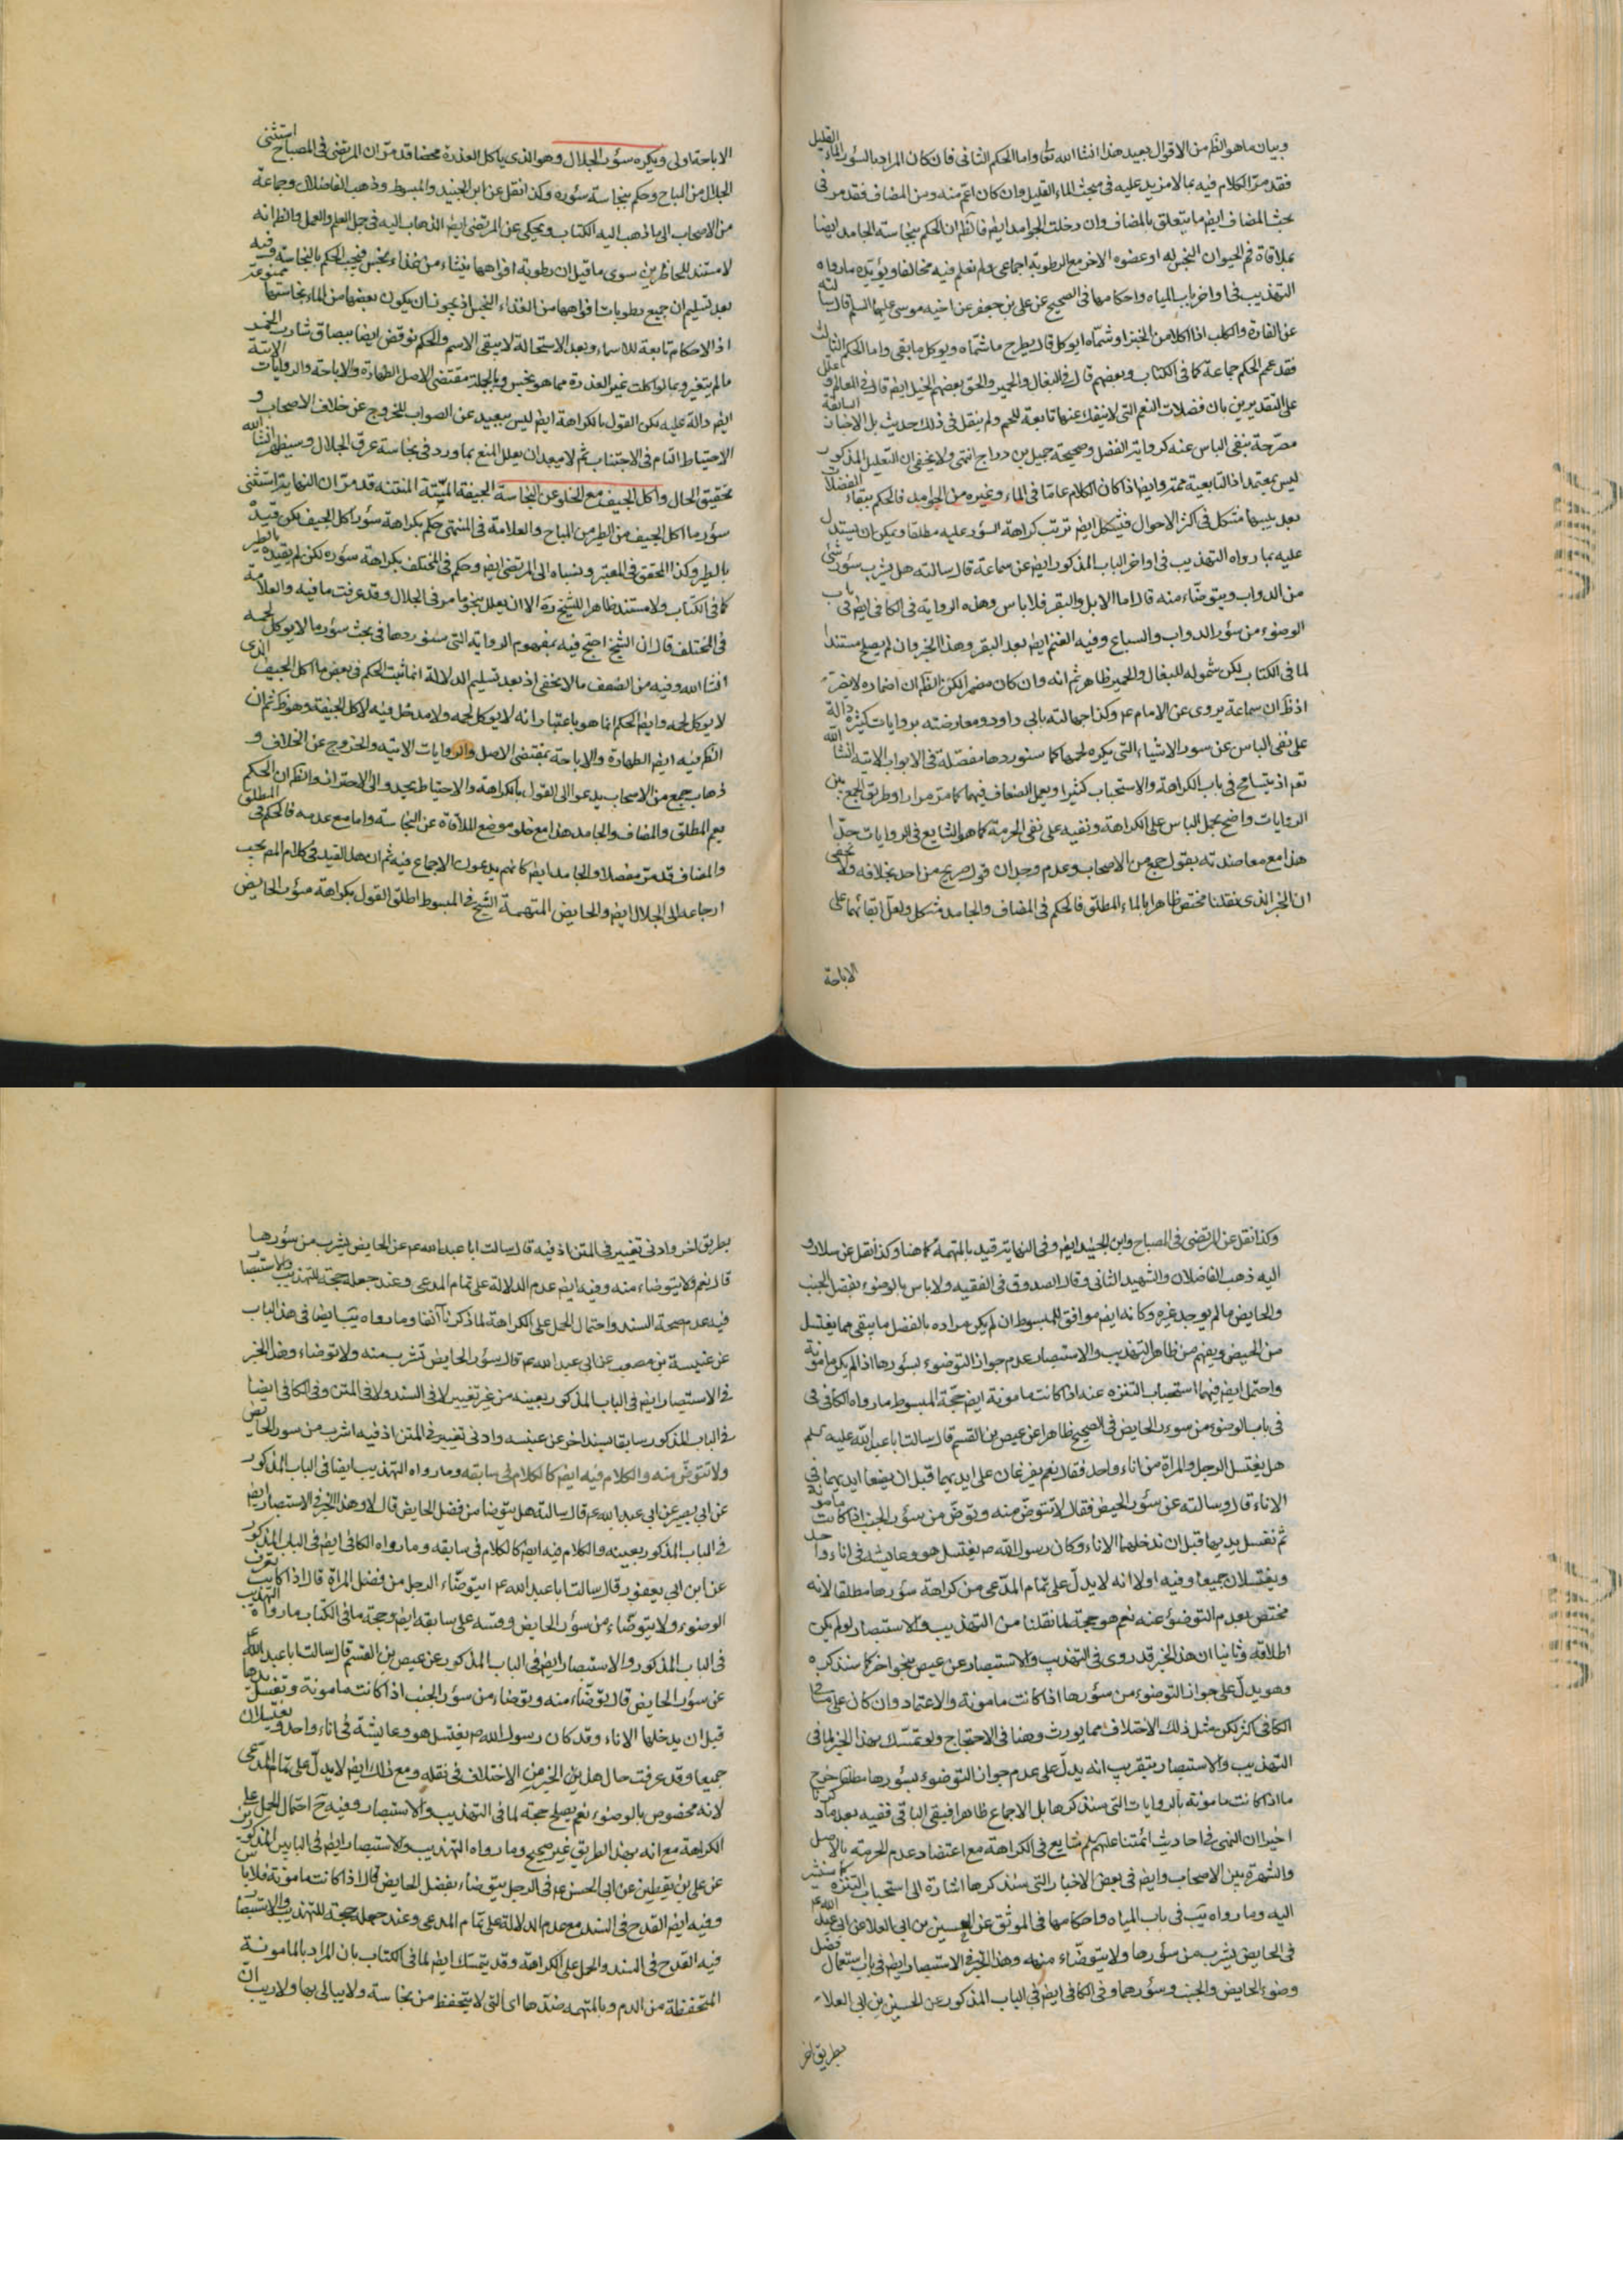 وبيان ماهو الظم من الاقوال بعيد هذا انشا الله تعا واما الحكم الثانى فان كان المراد بالسؤر الماء القليل
فقد مرّ الكلام فيه بمالامزيد عليه فى مبحث الماء القليل وان كان اعمّ منه ومن المضاف فقد مر فى
بحث المضاف ايضم ما يتعلق بالمضاف وان دخلت الجوامد ايضم فالظم ان الحكم بنجاسة الجامد ايضا
بملاقاة فم الحيوان النجس له او عضوه الاخر مع الرطوبة اجماعى ولم نعلم فيه مخالفا ويؤيده مارواه
التهذيب فى اواخر باب المياه واحكامها فى الصحيح عن على بن جعفر عن اخيه موسى عليهما السلم قال سالته
عن الفارة والكلب اذا اكلا من الخبز او شمّاه ايوكل قال يطرح ما شمّاه ويوكل مابقى واما الحكم الثالث
فقد عمم الحكم جماعة كما فى الكتاب وبعضهم قال فى البغال والحمير والحق بعضهم الخيل ايضم قال فى المعالم وعلل
على التقديرين بان فضلات النعم التى لاينفك عنها تابعة للحم ولم ينقل فى ذلك حديث بل الاخبار السابقة
مصرّحة بنفى الباس عنه كرواية الفضل وصحيحة جميل بن دراج انتهى ولا يخفى ان التعليل المذكور
ليس بمعتمد اذ التابعية ممم وايضا اذا كان الكلام عامّا فى الماء وغيره من الجوامد فالحكم ببقاء الفضلات
بعد يبسها مشكل فى اكثر الاحوال فيشكل ايضم ترتب كراهة السؤر عليه مطلقا ويمكن ان يستدل
عليه بما رواه التهذيب فى اواخر الباب المذكور ايضم عن سماعة قال سالته هل يشرب سؤر شئ
من الدواب ويتوضّاء منه قال اما الابل والبقر فلا باس وهذه الرواية فى الكافى ايضم فى باب
الوضوء من سؤر الدواب والسباع وفيه الغنم ايضم بعد البقر وهذا الخبر وان لم يصلح مستندا
لما فى الكتاب لكن شموله للبغال والحمير ظاهر ثم انه وان كان مضمرا لكن الظم ان اضماره لايضر
اذ ظم ان سماعة يروى عن الامام عم وكذا جهالته بابى داود ومعارضته بروايات كثيرة دالة
على نفى الباس عن سور الاشياء التى يكره لحمها كما سنوردها مفصّلة فى الابواب الاتية انشا الله
تعم اذ يتسامح فى باب الكراهة والاستحباب كثيرا ويعمل الضعاف فيهما كما مر مرارا وطريق الجمع بين
الروايات واضح بحمل الباس على الكراهة ونفيه على نفى الحرمة كما هو الشايع فى الروايات جدّا
هذا مع معاضدته بقول جمع من الاصحاب وعدم وجدان قول صريح من احد بخلافه ولا يخفى
ان الخبر الذى نقلنا مختص ظاهرا بالماء المطلق فالحكم فى المضاف والجامد مشكل ولعل ابقائهما على
الاباحة
الاباحة اولى ويكره سؤر الجلال وهو الذى ياكل العذرة محضا قد مرّ ان المرتضى فى المصباح استثنى
الجلال من المباح وحكم بنجاسة سئوره وكذا نقل عن ابن الجنيد والمبسوط وذهب الفاضلان وجماعة
من الاصحاب الى ما ذهب اليه الكتاب ويحكى عن المرتضى ايضم الذهاب اليه فى جمل العلم والعمل والظم انه
لا مستند للحاظرين سوى ما قيل ان رطوبة افواهها ينشاء من غذاء نجس فيجب الحكم بالنجاسة وفيه
بعد تسليم ان جميع رطوبات افواهها من الغذاء النجس اذ يجوز ان يكون بعضها من الماء نجاستها ممنوعة
اذ الاحكام تابعة للاسماء وبعد الاستحالة لايبقى الاسم والحكم ونوقض ايضا ببصاق شارب الخمر
مالم يتغير وبما لو اكلت غير العذرة مما هو نجس وبالجملة مقتضى الاصل الطهارة والاباحة والروايات الاتية
ايضم دالة عليه لكن القول بالكراهة ايضم ليس ببعيد عن الصواب للخروج عن خلاف الاصحاب و
الاحتياط التام فى الاجتناب ثم لا يبعد ان يعلل المنع بما ورد فى نجاسة عرق الجلال وسيظهر انشا الله
تحقيق الحال واكل الجيف مع الخلو عن النجاسة الجيفة الميّتة المنتنة قد مرّ ان النهاية استثنى
سؤر ما اكل الجيف من الطير من المباح والعلامة فى المنتهى حكم بكراهة سؤر اكل الجيف لكن قيّده
بالطير وكذا المحقق فى المعتبر ونسباه الى المرتضى ايضم وحكم فى المختلف بكراهة سؤره لكن لم يقيده بالطير
كما فى الكتاب ولا مستند ظاهرا للشيخ ره الا ان يعلل بنحو مامر فى الجلال وقد عرفت مافيه والعلامة
فى المختلف قال ان الشيخ احتج فيه بمفهوم الرواية التى سنوردها فى بحث سؤر ما لا يوكل لحمه
انشا الله وفيه من الضعف ما لا يخفى اذ بعد تسليم الدلالة انما ثبت الحكم فى بعض ما اكل الجيف الذى
لا يوكل لحمه وايضم الحكم انما هو باعتبار انه لا يوكل لحمه ولا مدخل فيه لاكل الجيفة وهو ظم ثم ان
الظم فيه ايضم الطهارة والاباحة بمقتضى الاصل والروايات الاتية والخروج عن الخلاف و
ذهاب جمع من الاصحاب يدعو الى القول بالكراهة والاحتياط يحدو الى الاحتراز والظم ان الحكم
يعم المطلق والمضاف والجامد هذا مع خلو موضع الملاقاة عن النجاسة واما مع عدمه فالحكم فى المطلق
والمضاف قد مر مفصلا والجامد ايضم كانهم يدعون الاجماع فيه ثم ان هذا القيد فى كلام المص يجب
ارجاعه الى الجلال ايضم والحايض المتهمة الشيخ فى المبسوط اطلق القول بكراهة سؤر الحايض
وكذا نقل عن المرتضى فى المصباح وابن الجنيد ايضم وفى النهاية قيد بالمتهمة كما هنا وكذا نقل عن سلار و
اليه ذهب الفاضلان والشهيد الثانى وقال الصدوق فى الفقيه ولا باس بالوضوء بفضل الجنب
والحايض مالم يوجد غيره وكانه ايضم موافق للمبسوط ان لم يكن مراده بالفضل ما يبقى مما يغتسل
من الحيض ويفهم من ظاهر التهذيب والاستبصار عدم جواز التوضوء بسؤرها اذا لم يكن مامونة
واحتمل ايضم فيهما استحباب التنزه عنه اذا كانت مامونة ايضم حجّة المبسوط مارواه الكافى فى
فى باب الوضوء من سوءر الحايض فى الصحيح ظاهرا عن عيص بن القسم قال سالت ابا عبد الله عليه السلم
هل يغتسل الرجل والمراة من اناء واحد فقال نعم يفرغان على ايديهما قبل ان يضعا ايديهما فى
الاناء قال وسالته عن سؤر الحيض فقال لا تتوضّ منه وتوضّ من سؤر الجنب اذا كانت مامونة
ثم تغسل يديها قبل ان تدخلهما الاناء وكان رسول الله ص يغتسل هو وعايشة فى اناء واحد
ويغتسلان جميعا وفيه اولا انه لا يدلّ على تمام المدّعى من كراهة سؤرها مطلقا لانه
مختص بعدم التوضئ عنه نعم هو حجة لما نقلنا من التهذيب والاستبصار لو لم يكن
اطلاقه وثانيا ان هذا الخبر قد روى فى التهذيب والاستبصار عن عيص بنحو اخر كما سنذكره
وهو يدلّ على جواز التوضوء من سؤرها اذا كانت مامونة والاعتماد وان كان على ما فى
الكافى اكثر لكن مثل ذلك الاختلاف مما يورث وهنا فى الاحتجاج ولو تمسّك بهذا الخبر لما فى
التهذيب والاستبصار بتقريب انه يدلّ على عدم جواز التوضوء بسؤرها مطلقا خرج
ما اذا كانت مامونة بالروايات التى سنذكرها بل الاجماع ظاهرا فيبقى الباقى ففيه بعد ماذكرنا
اخيرا ان النهى فى احاديث ائمتنا عليهم لم شايع فى الكراهة مع اعتضاد عدم الحرمة بالاصل
والشهرة بين الاصحاب وايضم فى بعض الاخبار التى سنذكرها اشارة الى استحباب التنزه كما سنشير
اليه وما رواه يب فى باب المياه واحكامها فى الموثق عن الحسين بن ابى العلا عن ابى عبد الله عم
فى الحايض يشرب من سؤرها ولا يتوضّاء منه وهذا الخبر فى الاستبصار ايضم فى باب استعمال فضل
وضوء الحايض والجنب وسؤرهما وفى الكافى ايضم فى الباب المذكور عن الحسين بن ابى العلاء
بطريق اخر
بطريق اخر وادنى تغيير فى المتن اذ فيه قال سالت ابا عبد الله عم عن الحايض يشرب من سؤرها
قال نعم ولا يتوضاء منه وفيه ايضم عدم الدلالة على تمام المدعى وعند جعله حجة للتهذيب والاستبصار
فيه عدم صحة السند واحتمال الحمل على الكراهة لما ذكرنا آنفا وما رواه يب ايضا فى هذا الباب
عن عنبسة بن مصعب عن ابى عبد الله عم قال سؤر الحايض تشرب منه ولا توضاء وهذا الخبر
فى الاستبصار ايضم فى الباب المذكور بعينه من غير تغيير لا فى السند ولا فى المتن وفى الكافى ايضا
فى الباب المذكور سابقا بسند اخر عن عنبسه وادنى تغيير فى المتن اذ فيه اشرب من سور الحايض
ولا تتوضّ منه والكلام فيه ايضم كالكلام فى سابقه وما رواه التهذيب ايضا فى الباب المذكور
عن ابى بصير عن ابى عبد الله عم قال سالته هل يتوضا من فضل الحايض قال لا وهذا الخبر فى الاستبصار ايضم
فى الباب المذكور بعينه والكلام فيه ايضم كالكلام فى سابقه وما رواه الكافى ايضم فى الباب المذكور
عن ابن ابى يعفور قال سالت ابا عبد الله عم ايتوضّاء الرجل من فضل المراة قال اذا كانت تعرف
الوضوء ولا يتوضّاء من سؤر الحايض وقسه على سابقه ايضم وحجة ما فى الكتاب ما رواه التهذيب
فى الباب المذكور والاستبصار ايضم فى الباب المذكور عن عيص بن القسم قال سالت ابا عبد الله عم
عن سؤر الحايض قال توضّاء منه وتوضاء من سؤر الجنب اذا كانت مامونة وتغسل يدها
قبل ان يدخلها الاناء وقد كان رسول الله ص يغتسل هو وعايشة فى اناء واحد ويغتسلان
جميعا وقد عرفت حال هذين الخبرين من الاختلاف فى نقله ومع ذلك ايضم لا يدلّ على تمام المدّعى
لانه مخصوص بالوضوء نعم يصلح حجة لما فى التهذيب والاستبصار وفيه ح احتمال الحمل على
الكراهة مع انه بهذا الطريق غير صحيح وما رواه التهذيب والاستبصار ايضم فى البابين المذكورين
عن على بن يقطين عن ابى الحسن عم فى الرجل يتوضاء بفضل الحايض قال اذا كانت مامونة فلا باس
وفيه ايضم القدح فى السند مع عدم الدلالة على تمام المدعى وعند جعله حجة للتهذيب والاستبصار
فيه القدح فى السند والحمل على الكراهة وقد يتمسّك ايضم لما فى الكتاب بان المراد بالمامونة
المتحفظة من الدم وبالمتهمه ضدّها اى التى لا يتحفظ من نجاسة ولا يبالى بها ولا ريب ان